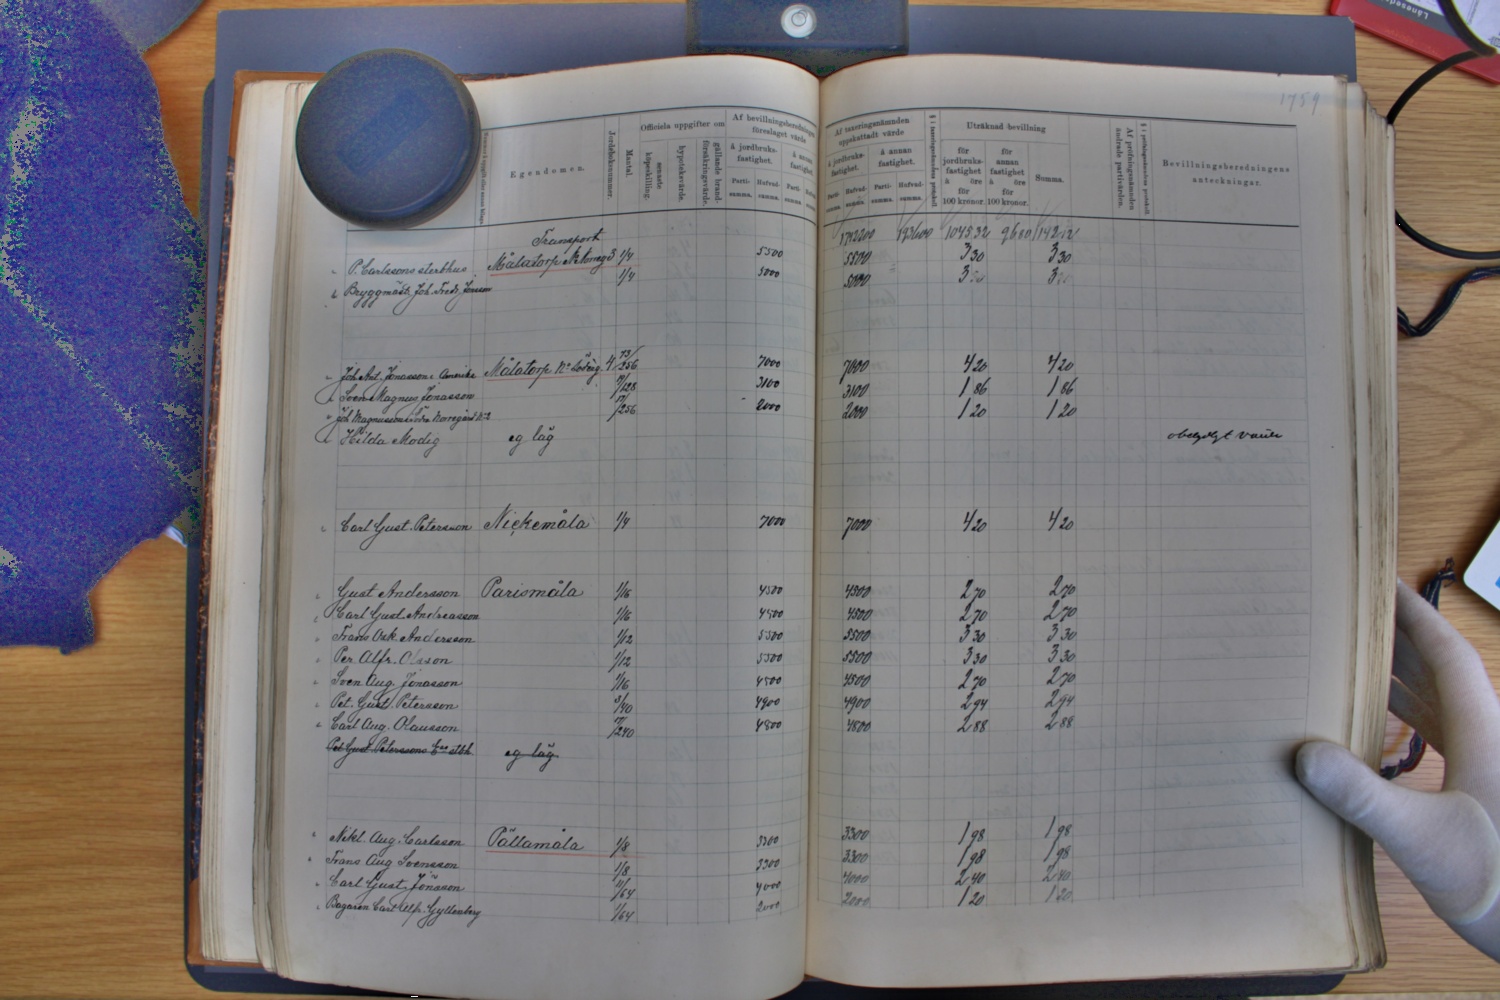 1759
Egendomen.
Jordeboksnummer.
Mantal.
Officiela uppgifter om
senaste köpeskilling.
hypoteksvärde.
gällande brandförsäkringsvärde.
Af bevillningsberedningen föreslaget värde
å jordbruksfastighet.
å annan fastighet.
Partisumma.
Hufvudsumma.
Parti-
Af taxeringsnämnden uppskattadt värde
å jordbruksfastighet.
å annan fastighet.
Partisumma.
Hufvudsumma.
Partisumma.
Hufvudsumma.
Uträknad bevillning
för jordbruksfastighet à öre för 100 kronor.
för annan fastighet à öre för 100 kronor.
Summa.
Af pröfningsnämnden ändrade partivärden.
Bevillningsberedningens anteckningar.
Transport 1742200 193600
P. Carlssons sterbhus Målatorp 3 1/4 5500 5500 3 30 3 30
Bryggmäst. Joh. Fredr. Jonsson 1/4 5000 5000 3
Joh. Ant. Jonasson i Amerika Målatorp No Södreg. 4 73/256 7000 7000 4 20 4 20
Sven Magnus Jonasson /128 3100 3100 1 86 1 86
Joh Magnusson i Norregård /256 2000 2000 1 20 1 20
Hilda Modig eg läg
Carl Gust. Petersson Nickemåla 1/4 7000 7000 4 20 4 20
Gust Andersson Parismåla 1/16 4500 4500 2 70 2 70
Carl Gust Andreasson 1/16 4500 4500 2 70 2 70
Frans Osk. Andersson 1/12 5500 5500 3 30 3 30
Per Alfr. Olsson 1/12 5500 5500 3 30 3 30
Sven Aug. Jonasson 1/16 4500 4500 2 70 2 70
Pet. Gust Petersson 3/40 4900 4900 2 94 2 94
Carl Aug. Olausson 7/240 4800 4800 2 88 2 88
Pet Gust Peterssons stbh. eg läg.
Nikl. Aug. Carlsson Pållamåla 1/8 3300 3300 1 98 1 98
Frans Aug Svensson 1/8 3300 3300 1 98 1 98
Carl Gust Jönsson /64 4000 4000 2 40 2 40
Bagaren Carl Alfr. Gyllenberg /64 2000 2000 1 20 1 20